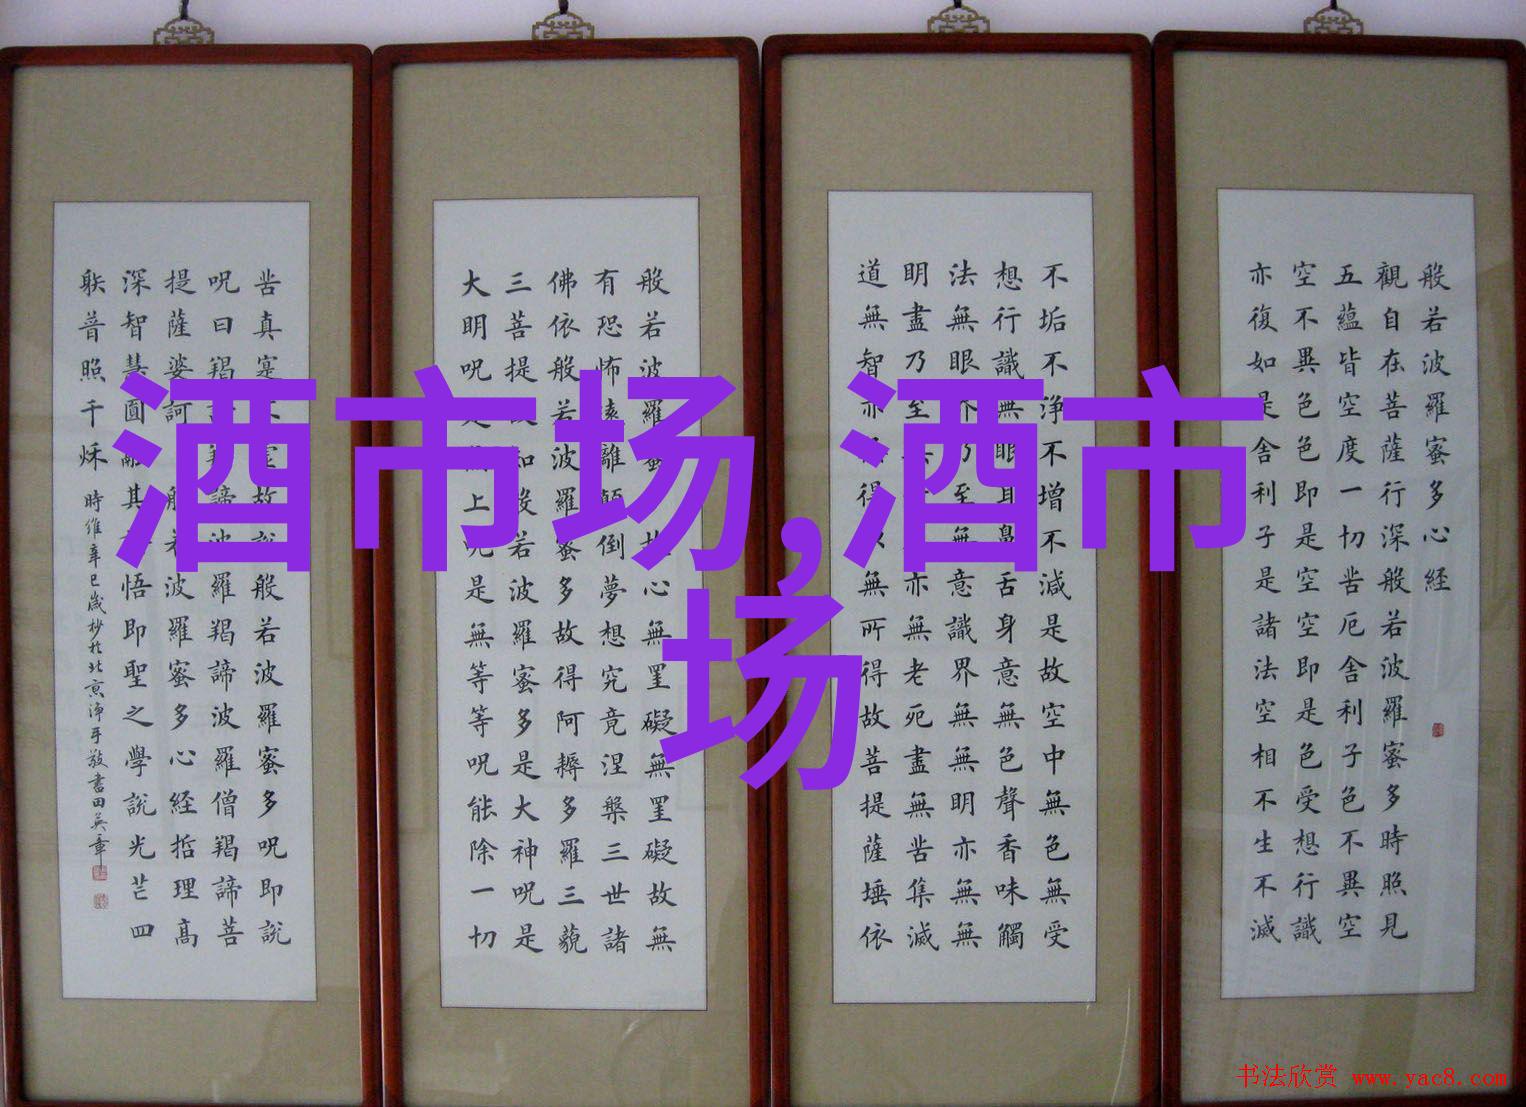 酒市场,酒市
场
般若波羅蜜多心経
觀自在菩薩行深般若波羅蜜多時照見
五蘊皆空度一切苦厄舍利子色不異空
空不異色色即是空空即是色受想行識
亦復如是舍利子是諸法空相不生不滅
不垢不淨不增不減是故空中無色無受
想行識無眼耳鼻舌身意無色聲香味觸
法無眼界乃至無意識界無無明亦無無
明盡乃至無老死亦無老死盡無苦集滅
道無智亦無得以無所得故菩提薩埵依
般若波羅蜜多故心無罣礙無罣礙故無
有恐怖遠離顛倒夢想究竟涅槃三世諸
佛依般若波羅蜜多故得阿耨多羅三藐
三菩提故知般若波羅蜜多是大神咒是
大明咒是無上咒是無等等咒能除一切
苦真寔不虛故說般若波羅蜜多咒即說
咒曰羯諦羯諦波羅羯諦波羅僧羯諦菩
提薩婆訶 般若波羅蜜多心経哲理高
深智慧圓融其悟即聖之學說光芒四
射普照千秌 時維辛巳歲杪於北京淨手敬書田英章
书法欣赏 www.yac8.com